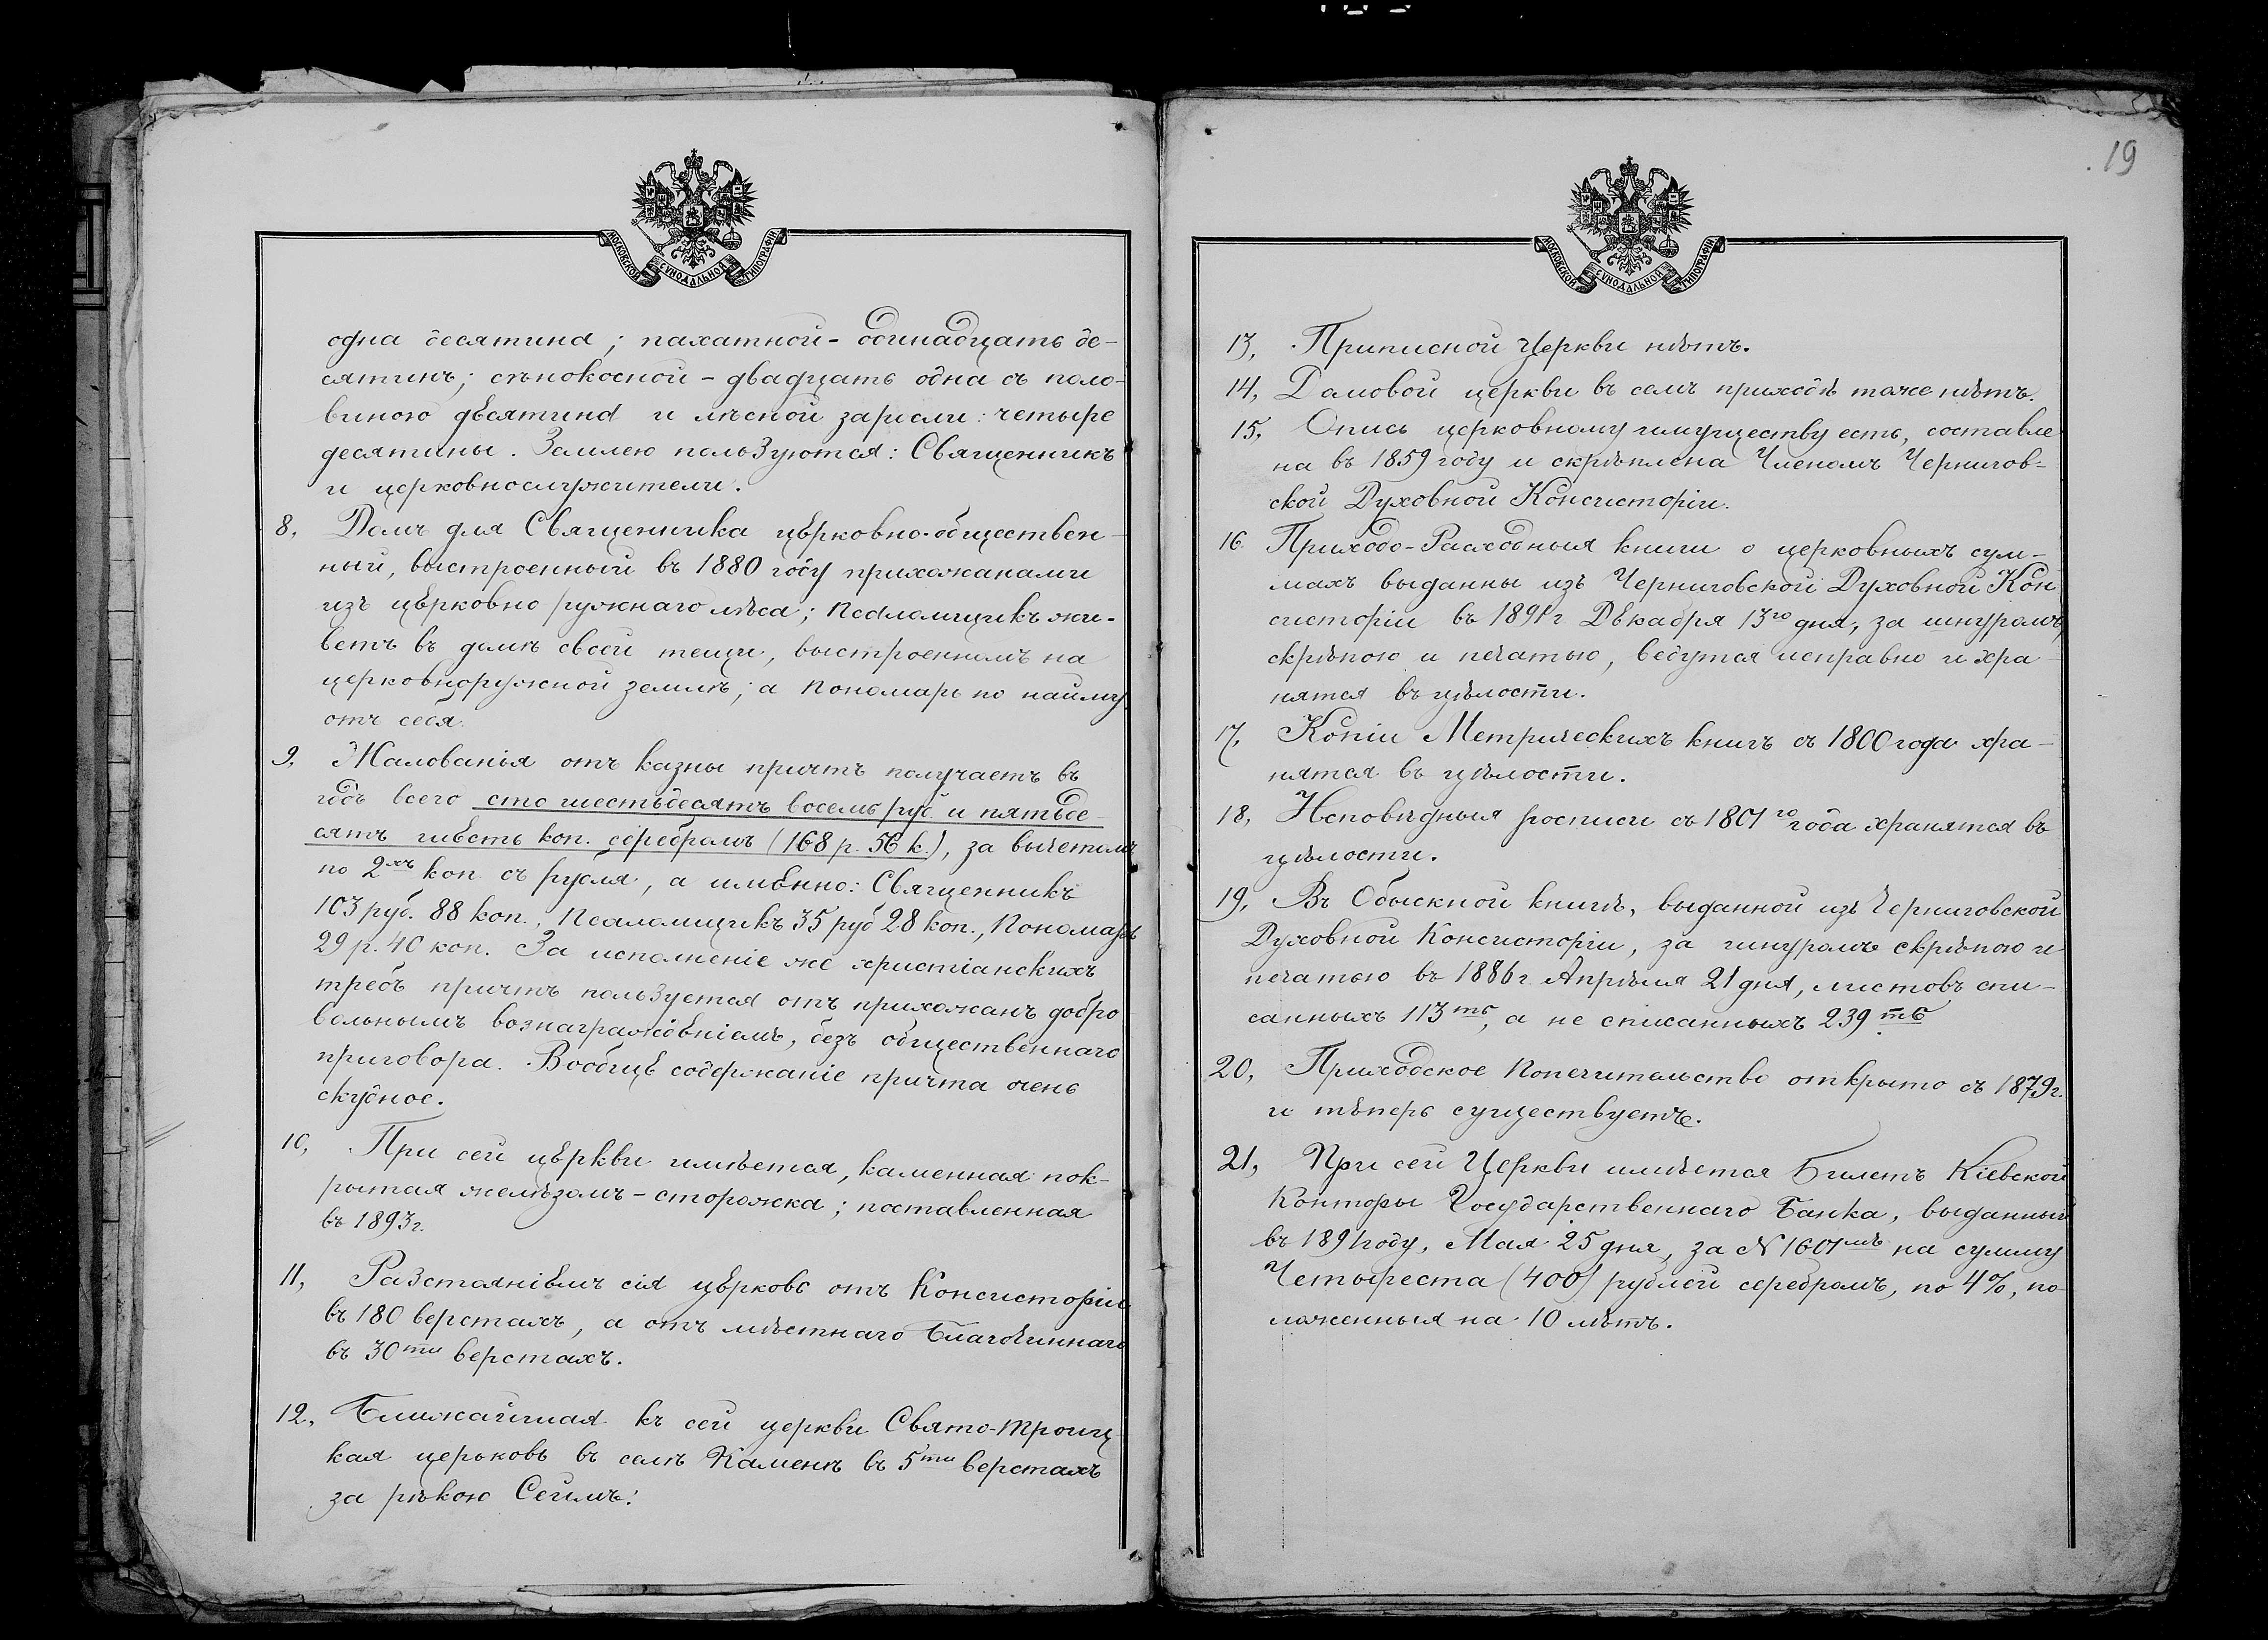 МОСКОВСКОЙ СѴНОДАЛЬНОЙ ТИПОГРАФІИ
одна десятина; пахатной - одинадцать де-
сятинъ; сѣнокосной - двадцать одна съ поло-
виною десятина и лѣсной заросли: четыре
десятины. Землею пользуются: Священникъ
и церковнослужители.
8, Домъ для Священника церковно-обществен-
ный, выстроенный въ 1880 году прихожанами
изъ церковно ружнаго лѣса; Псаломщикъ жи-
ветъ въ домѣ своей тещи, выстроенномъ на
церковноружной землѣ; а Пономарь по найму
отъ себя.
9, Жалованія отъ казны причтъ получаетъ въ
годъ всего сто шестьдесятъ восемь руб. и пятьде-
сятъ шесть коп. серебромъ (168 р. 56 к.), за вычетомъ
по 2хъ коп. съ рубля, а именно: Священникъ
103 руб. 88 коп., Псаломщикъ 35 руб 28 коп., Пономарь
29 р. 40 коп. За исполненіе же христіанскихъ
требъ причтъ пользуется отъ прихожанъ добро
вольнымъ вознагражденіемъ, безъ общественнаго
приговора. Вообще содержаніе причта очень
скудное.
10, При сей церкви имѣется, каменная пок-
рытая желѣзомъ - сторожка; поставленная
въ 1893 г.
11, Разстояніемъ сія церковь отъ Консисторіи
въ 180 верстахъ, а отъ мѣстнаго Благочиннаго
въ 30ти верстахъ.
12, Ближайшая къ сей церкви Свято-Троиц
кая церьковь въ селѣ Каменѣ въ 5ти верстахъ
за рѣкою Сеймъ.
19
МОСКОВСКОЙ СѴНОДАЛЬНОЙ ТИПОГРАФІИ
13, Приписной Церкви нѣтъ.
14, Домовой церкви въ семъ приходѣ тоже нѣтъ.
15, Опись церковному имуществу есть, составле
на въ 1859 году и скрѣплена Членомъ Чернигов=
ской Духовной Консисторіи.
16. Приходо-Расходныя книги о церковныхъ сум-
махъ выданны изъ Черниговской Духовной Кон
систоріи въ 1891 г Декабря 13го дня, за шнуромъ,
скрѣпою и печатью, ведутся исправно и хра-
нятся въ цѣлости.
17, Копіи Метрическихъ книгъ съ 1800 года хра-
нятся въ цѣлости.
18, Исповѣдныя росписи съ 1801го года хранятся въ
цѣлости.
19, Въ Обыскной книгѣ, выданной изъ Черниговской
Духовной Консисторіи, за шнуромъ скрѣпою и
печатью въ 1886 г. Апрѣля 21 дня, листовъ спи-
санныхъ 113ть, а не списанныхъ 239ть
20, Приходское Попечительство открыто съ 1879 г.
и теперь существуетъ.
21, При сей Церкви имѣется Билетъ Кіевской
Конторы Государственнаго Банка, выданный
въ 1891 году, Мая 25 дня, за № 1601мъ на сумму
Четыреста (400) рублей серебромъ, по 4%, по
ложенныя на 10 лѣтъ.